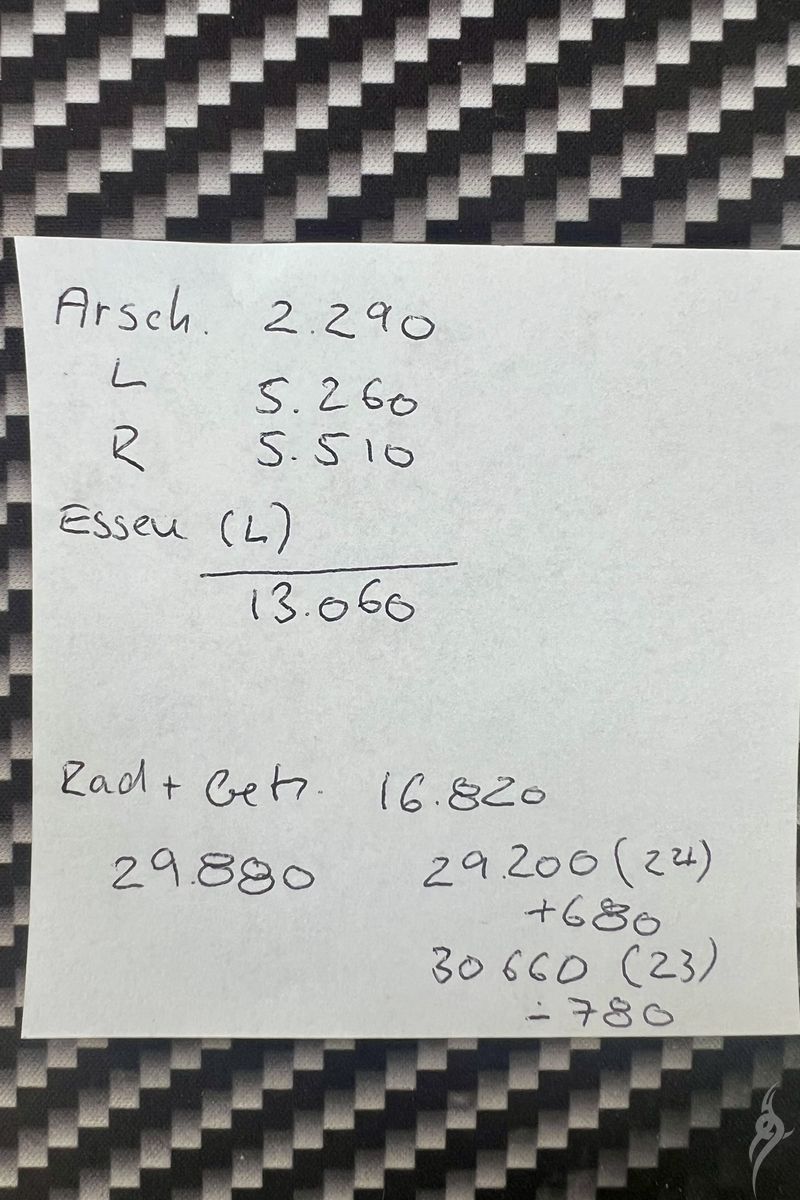 Arsch. 2.290
L 5.260
R 5.510
Essen (L)
13.060
Rad + Getr. 16.820
29.880 29.200 (24)
+680
30 660 (23)
- 780